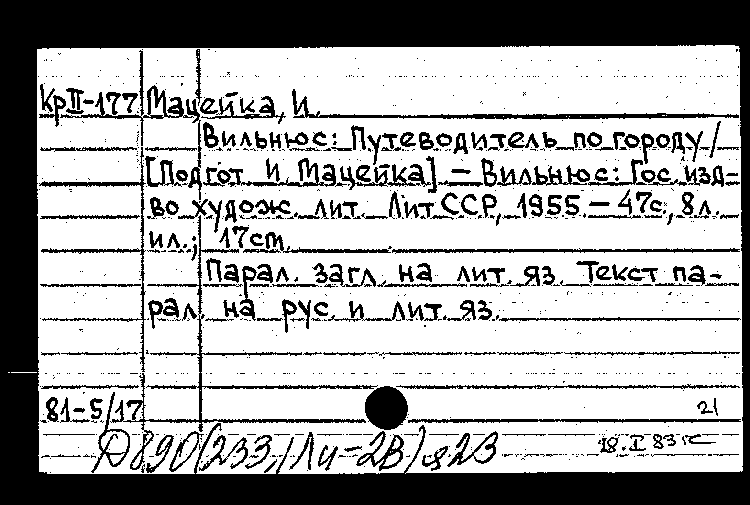 КрII-177 Мацейка, И.
Вильнюс: Путеводитель по городу /
[Подгот. И. Мацейка] — Вильнюс: Гос. изд-
во худож. лит. Лит ССР, 1955. — 47с., 8л.
ил.; 17cm.
Парал. загл. на лит. яз. Текст па-
рал. на рус. и лит. яз.
81-5/17 21
Д890(233.1Ли=2В)я23 18.I 83